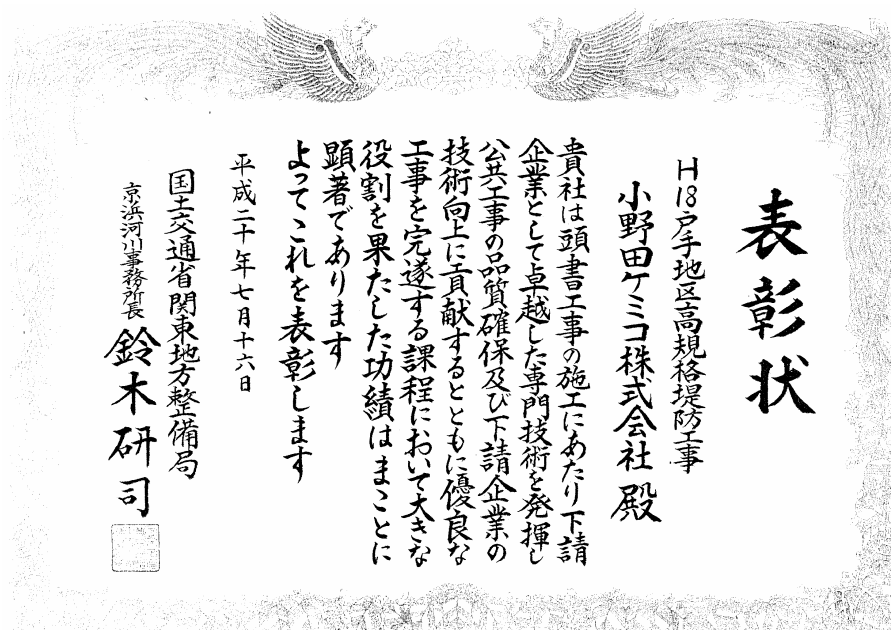 表彰状
H18戸手地区高規格堤防工事
小野田ケミコ株式会社 殿
貴社は頭書工事の施工にあたり下請
企業として卓越した専門技術を発揮し
公共工事の品質確保及び下請企業の
技術向上に貢献するとともに優良な
工事を完遂する課程において大きな
役割を果たした功績はまことに
顕著であります
よってこれを表彰します
平成二十年七月十六日
国土交通省関東地方整備局
京浜河川事務所長 鈴木研司